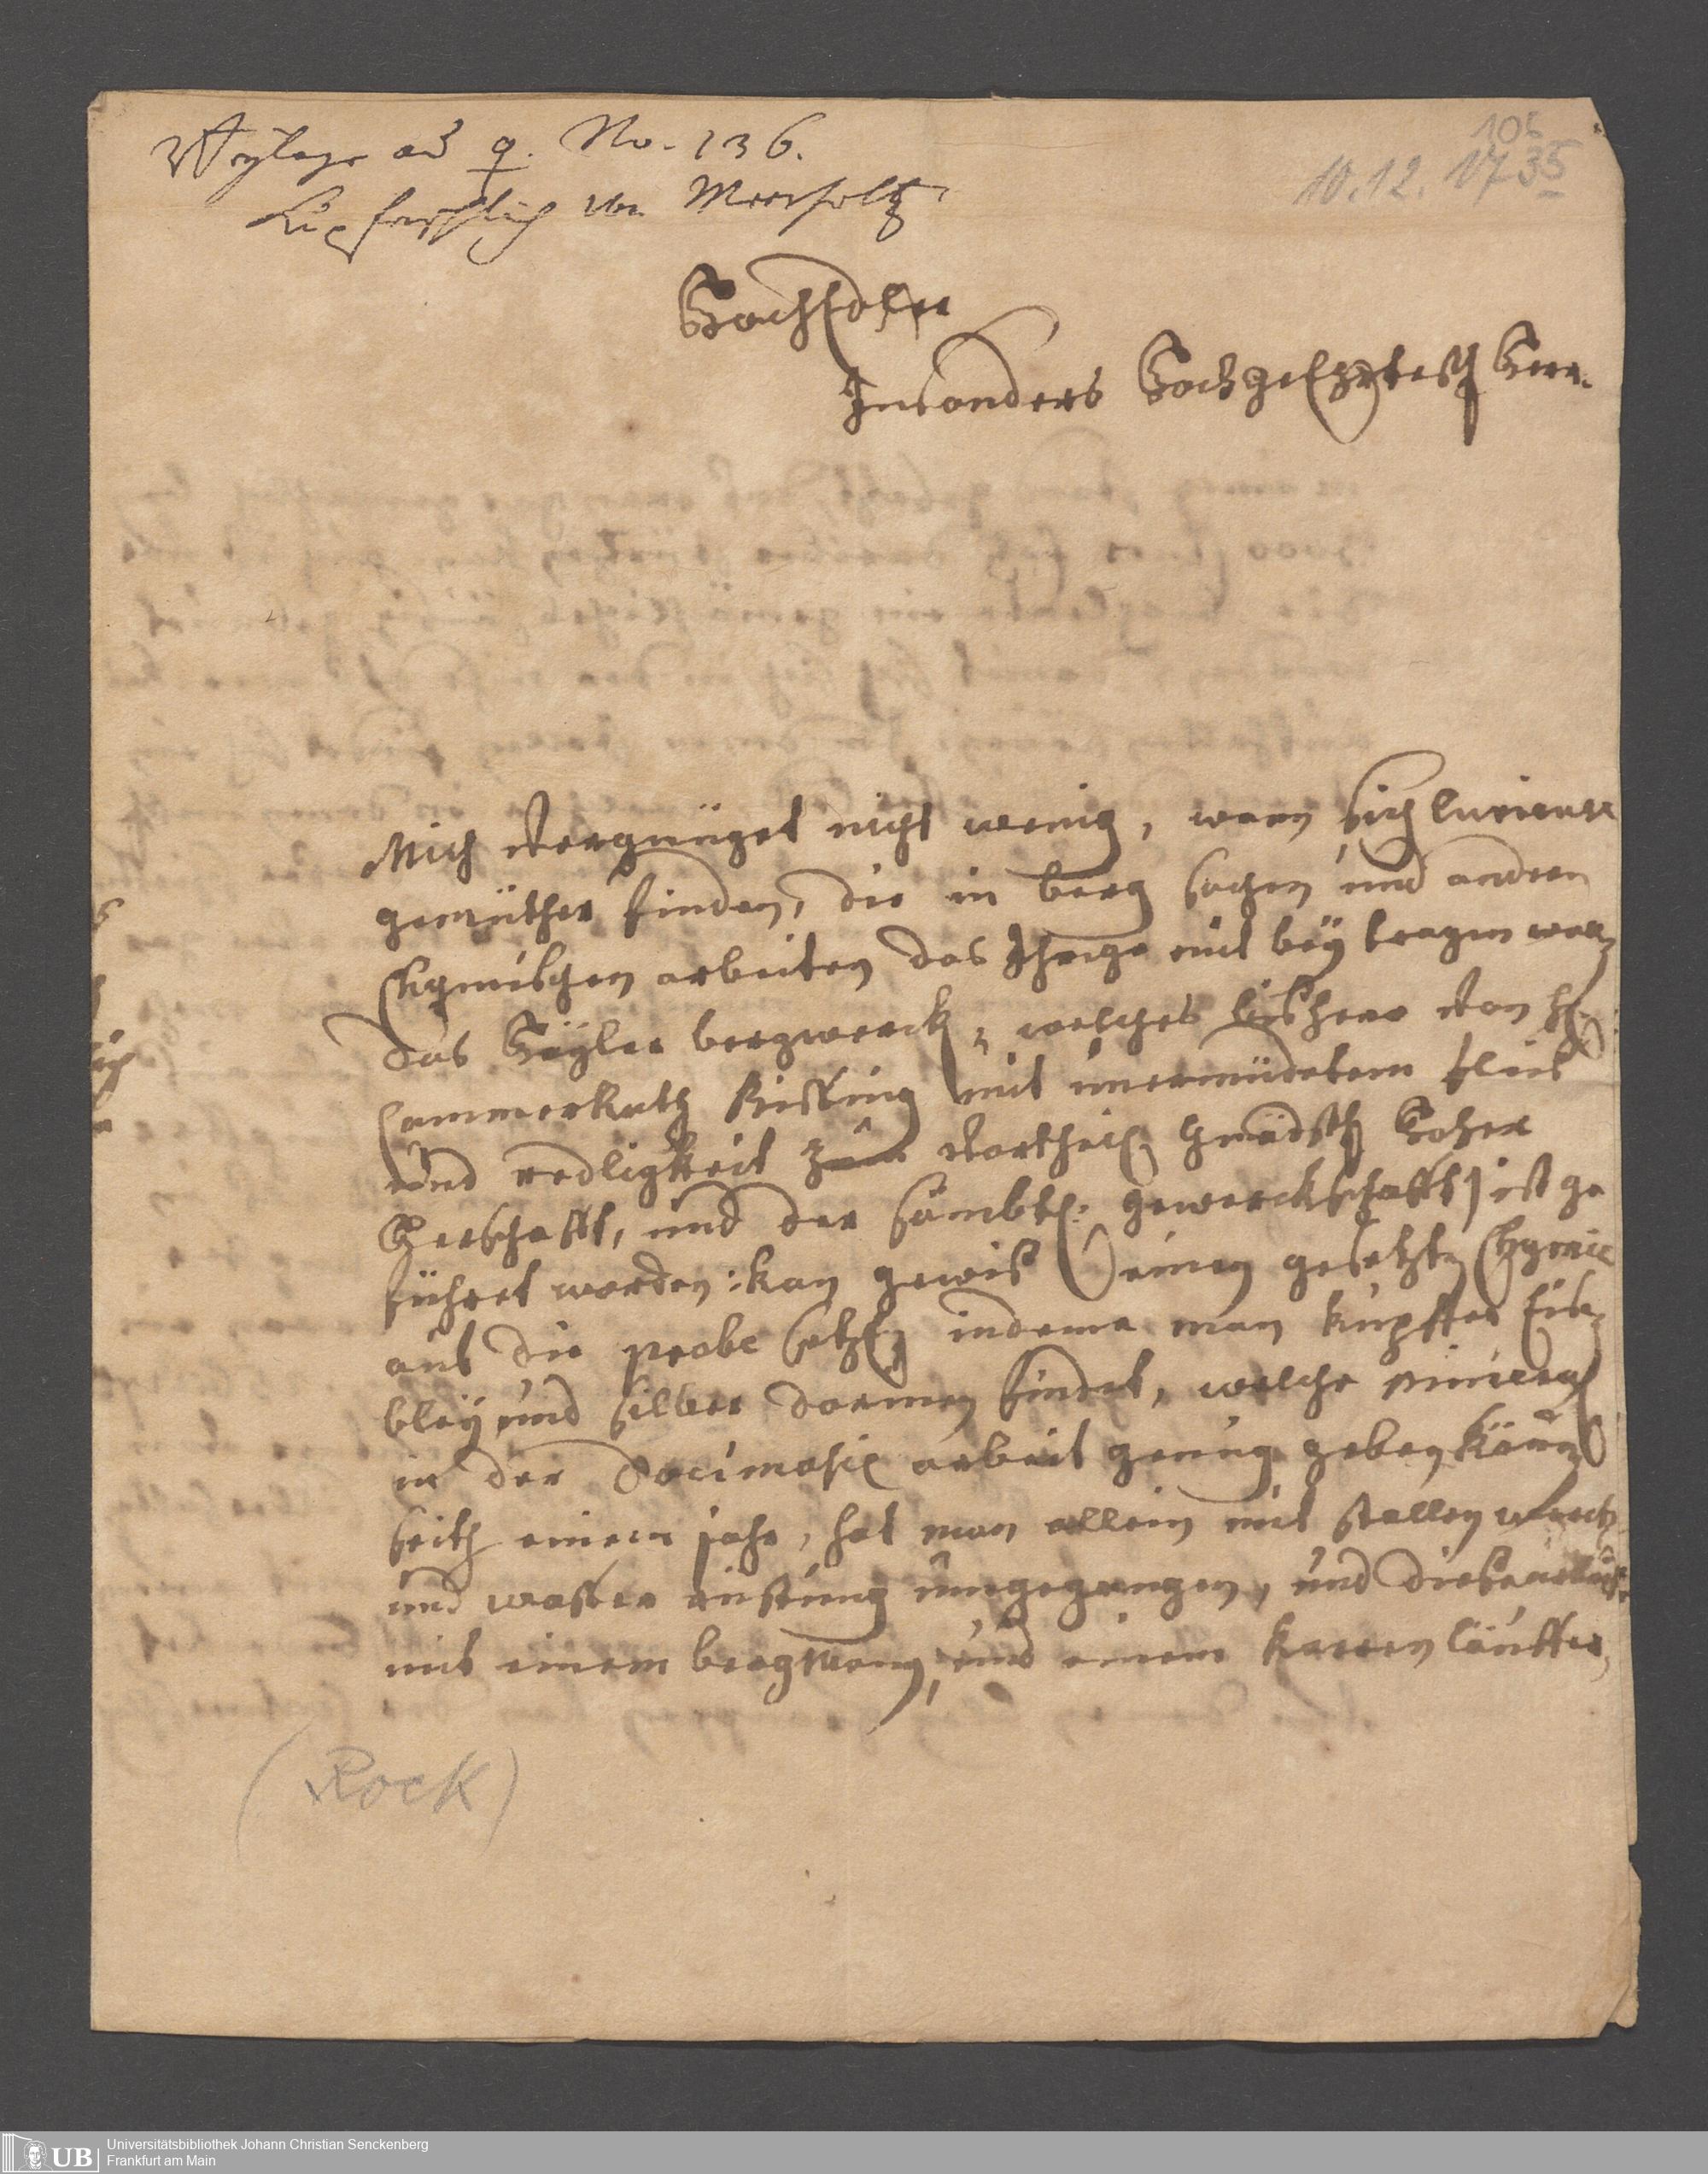 Beylage ad q. No. 136.
Meerholtz
105
10.12.1735
HochEdler
Insonders HochgeEhrtester Herr.
Mich vergnüget nicht wenig, wann sich curieuse
gemüther finden, die in berg sachen und andern
Chymischen arbeiten das Ihrige mit bey tragen
das bergwerck, welches bishero von H.
CammerRath mit unermüdetem fleis
und redligkeit zum vortheil Gnädster Hoher
Herschafft, und der sämbtl: gewerckschafft ist ge
führet worden: kan gewiß einen gesetzten Chymic
auf die probe setzen indeme man kupffer Eisen
bley und silber darinnen findet, welche mineral
in der Docimasie arbeit genug geben können
seith einem jahr, hat man allein mit stollen
und wasser umgegangen, und
mit einem bergman, und einem karren läuffer,
(Rock)
UB Universitätsbibliothek Johann Christian Senckenberg
Frankfurt am Main